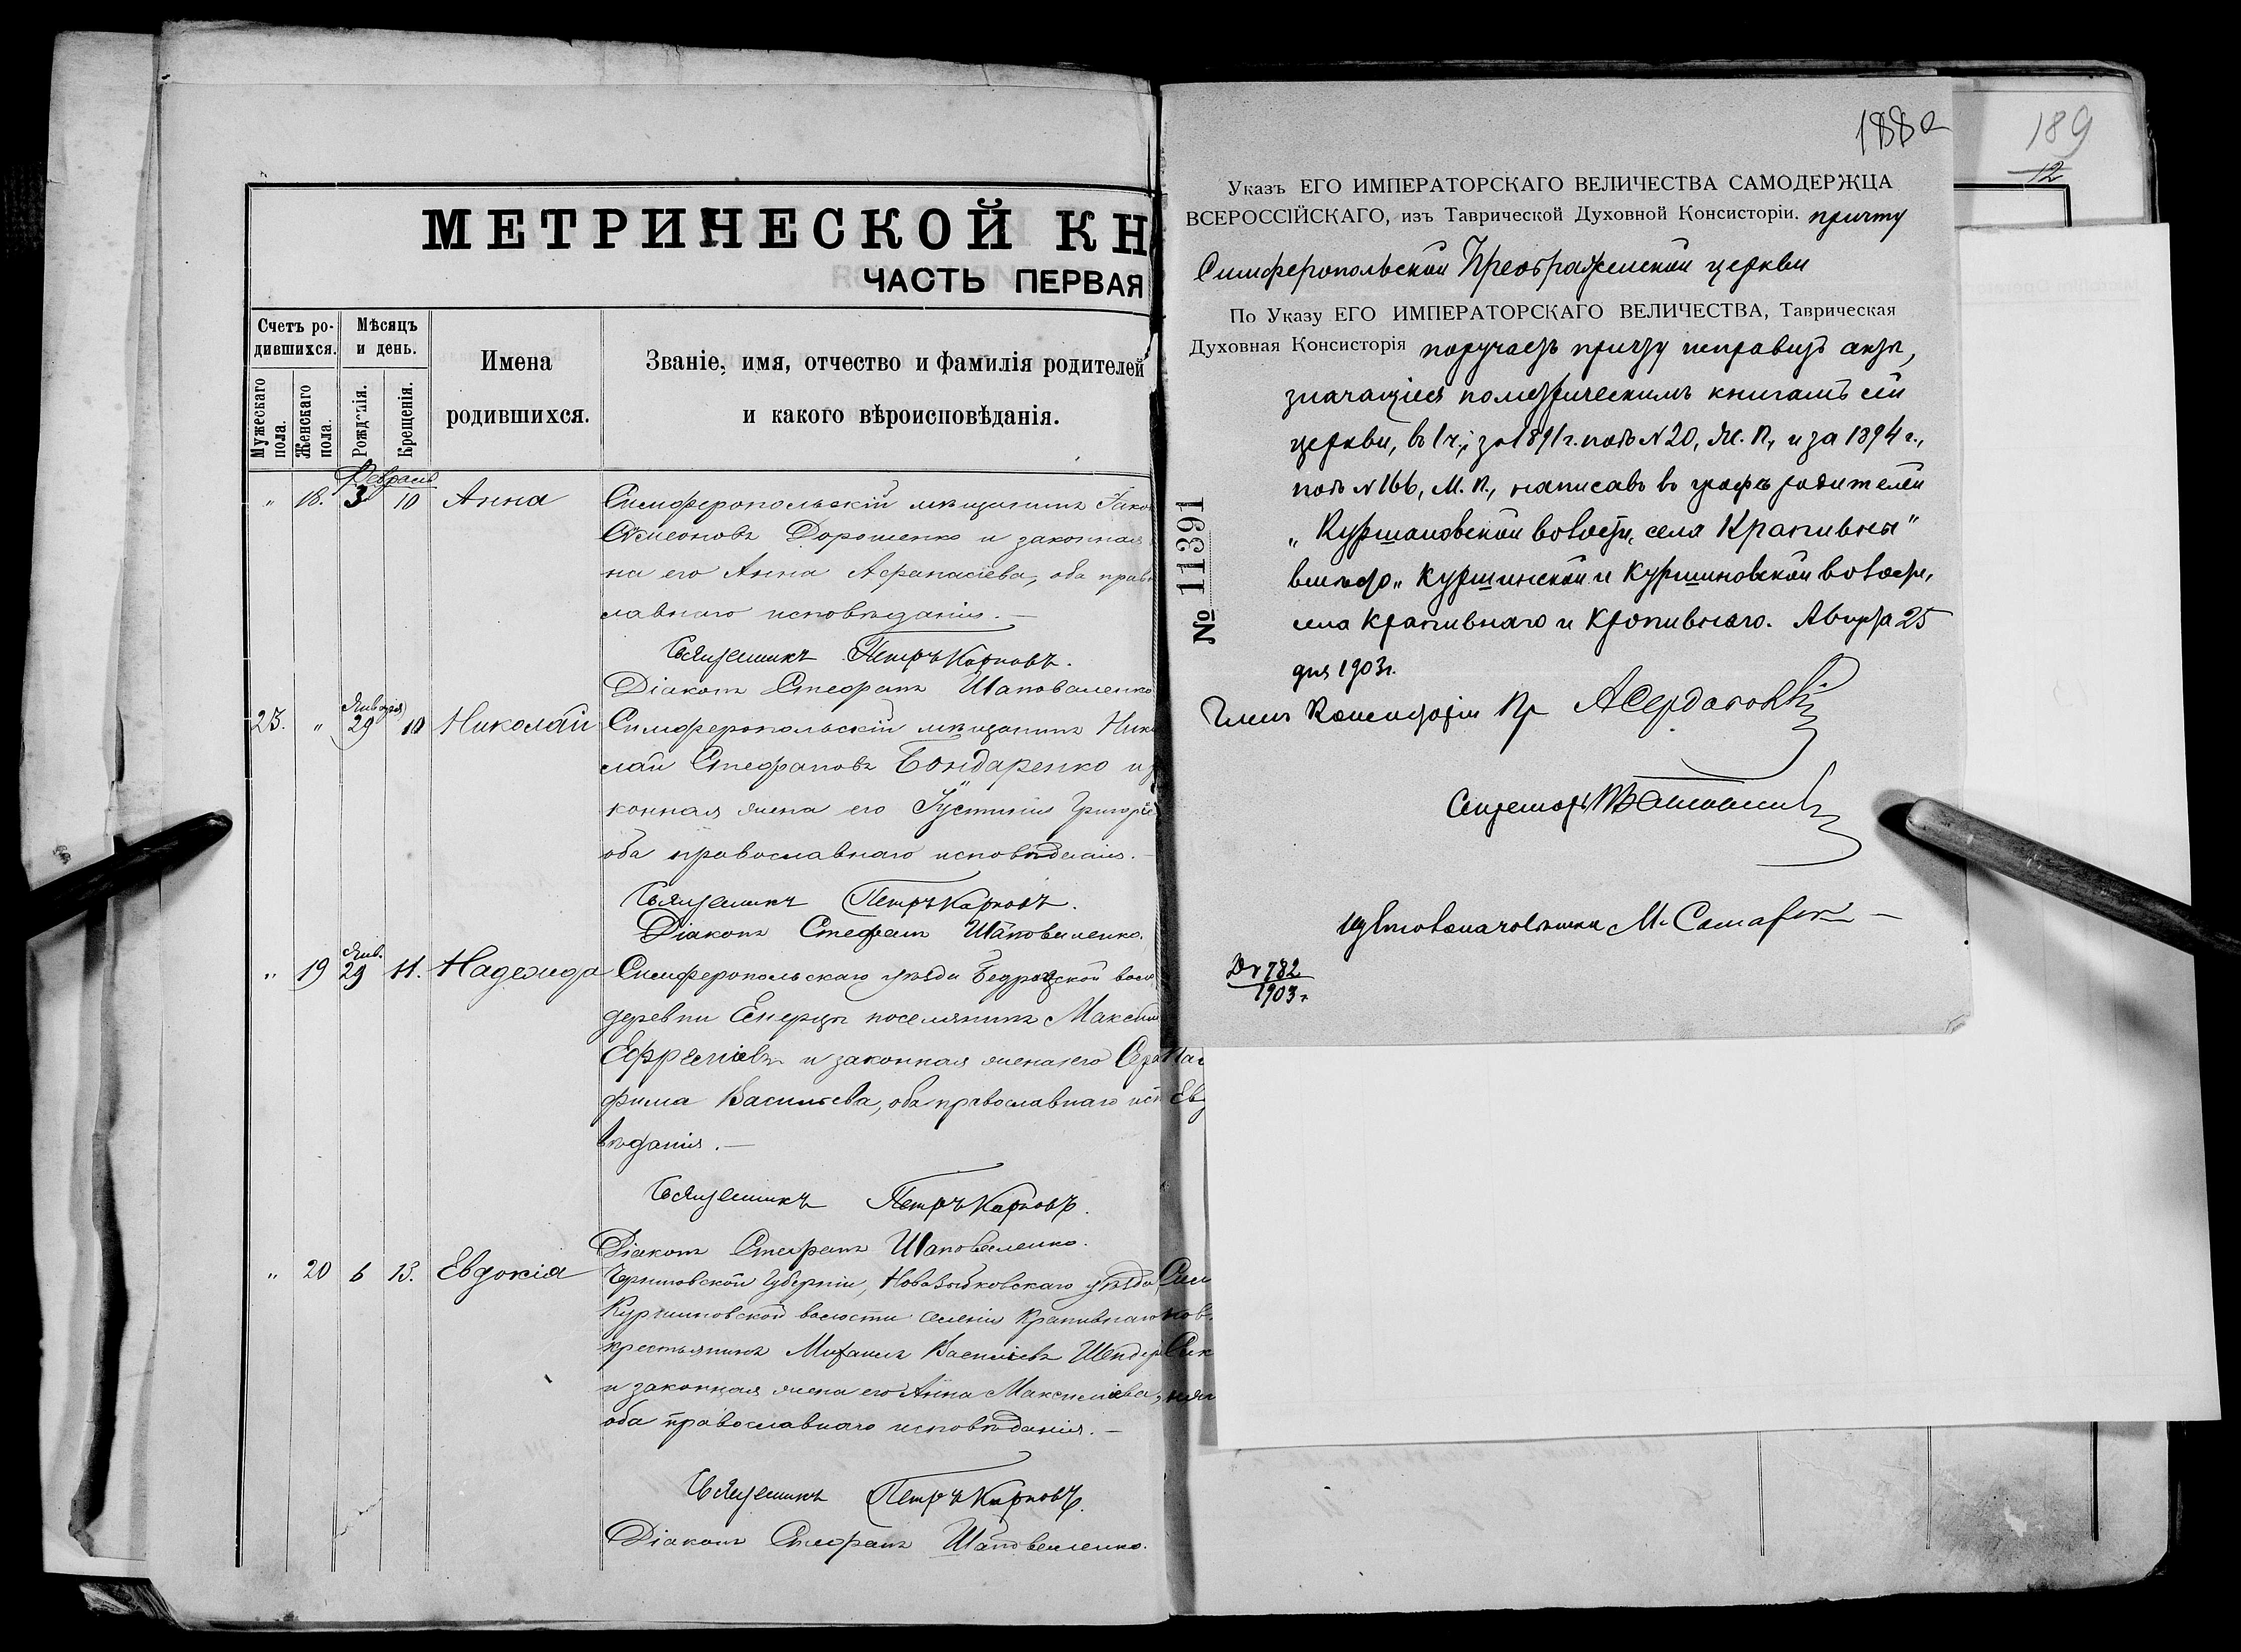 МЕТРИЧЕСКОЙ КН
ЧАСТЬ ПЕРВАЯ
Счетъ ро-
дившихся.
Мѣсяцъ
и день.
Мужескаго
пола.
Женскаго
пола.
Рожденія.
Крещенія.
Имена
родившихся.
Званіе, имя, отчество и фамилія родителей
и какого вѣроисповѣданія.
Февраль
" 18. 3 10 Анна
Симферопольскій мѣщанинъ Іако
Симеоновъ Дорошенко и законная
на его Анна Аѳанасіева, оба право
славнаго исповѣданія. —
Священникъ Петръ Карповъ.
Діаконъ Стефанъ Шаповаленко
Января
23. " 29 10 Николай
Симферопольскій мѣщанинъ Нико
лай Стефановъ Бондаренко и за
конная жена его Іустинія Григорье
оба православнаго исповѣданія. —
Священникъ Петръ Карповъ.
Діаконъ Стефанъ Шаповаленко.
Янв.
" 19 29 11. Надежда
Симферопольскаго уѣзда воло
деревни поселянинъ Макси
и законная жена его Сера
фима Васильева, оба православнаго исп
вѣданія. —
Священникъ Петръ Карповъ.
Діаконъ Стефанъ Шаповаленко.
" 20 6 13. Евдокія
Черниговской губерніи, Новозыбковскаго уѣзда
Куршиновской волости селенія Крапивнаго
крестьянинъ Михаилъ Васильевъ
и законная жена его Анна Максиміева,
оба православнаго исповѣданія. —
Священникъ Петръ Карповъ.
Діаконъ Стефанъ Шаповаленко.
188а
189
12
Указъ ЕГО ИМПЕРАТОРСКАГО ВЕЛИЧЕСТВА САМОДЕРЖЦА
ВСЕРОССІЙСКАГО, изъ Таврической Духовной Консисторіи. причту
Симферопольской Преображенской церкви
По Указу ЕГО ИМПЕРАТОРСКАГО ВЕЛИЧЕСТВА, Таврическая
Духовная Консисторія поручаетъ причту исправить акты,
значащіеся по метрическимъ книгамъ сей
церкви, въ 1 ч., за 1891 г. подъ N 20, Ж. П., и за 1894 г.,
подъ N 166, М. П., написавъ въ графѣ родителей
„Куршановской волости, села Крапивны"
вмѣсто „Куршинской и Куршиновской волости,
села Крапивнаго и Кропивнаго. Августа 25
дня 1903 г.
№ 11391
Членъ Консисторіи Пр
Секретарь
Столоначальника М.
782
1903 г.